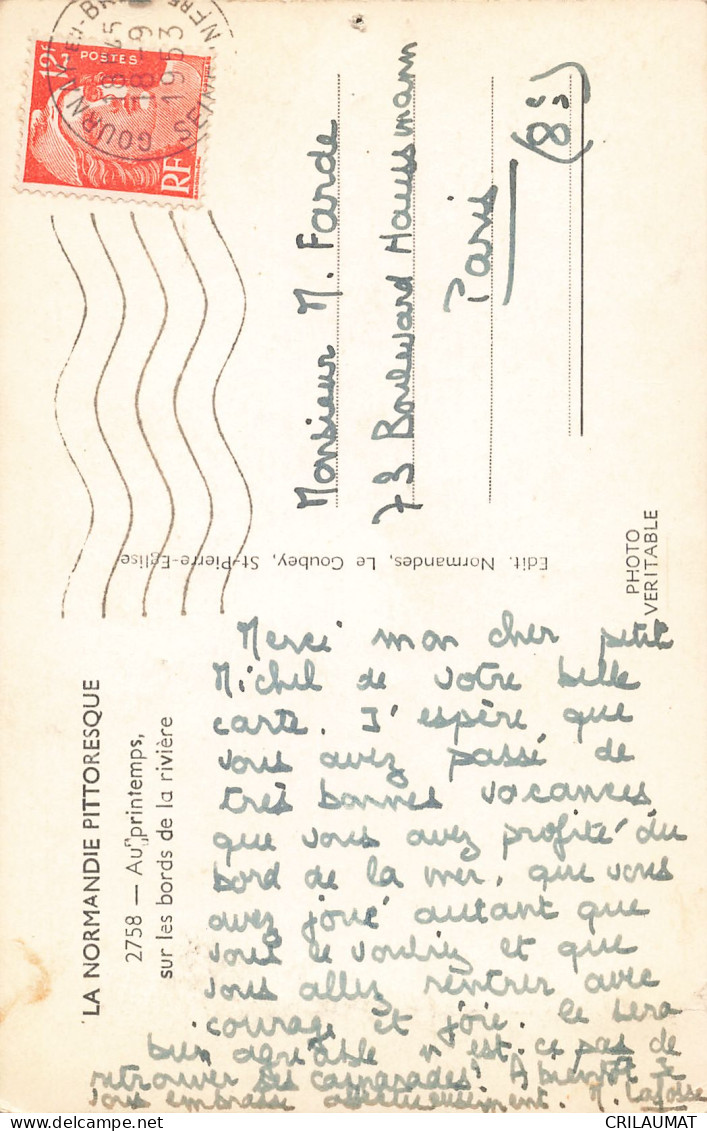 12F
POSTES
RF
GOURNAY-EN-BRAY
18H45
8-9
1953
Monsieur M. Farde
73 Boulevard Haussmann
Paris
(8è)
Edit. Normandes, Le Goubey, St-Pierre-Eglise
PHOTO
VERITABLE
LA NORMANDIE PITTORESQUE
2758 — Au printemps,
sur les bords de la rivière
Merci mon cher petit
Michel de votre belle
carte. J'espère que
vous avez passé de
très bonnes vacances
que vous avez profité du
bord de la mer, que vous
avez joué autant que
vous le vouliez et que
vous allez rentrer avec
courage et joie. Ce sera
bien agréable n'est-ce pas de
retrouver ses camarades! A bientôt Je
vous embrasse affectueusement. M. Lafosse
CRILAUMAT